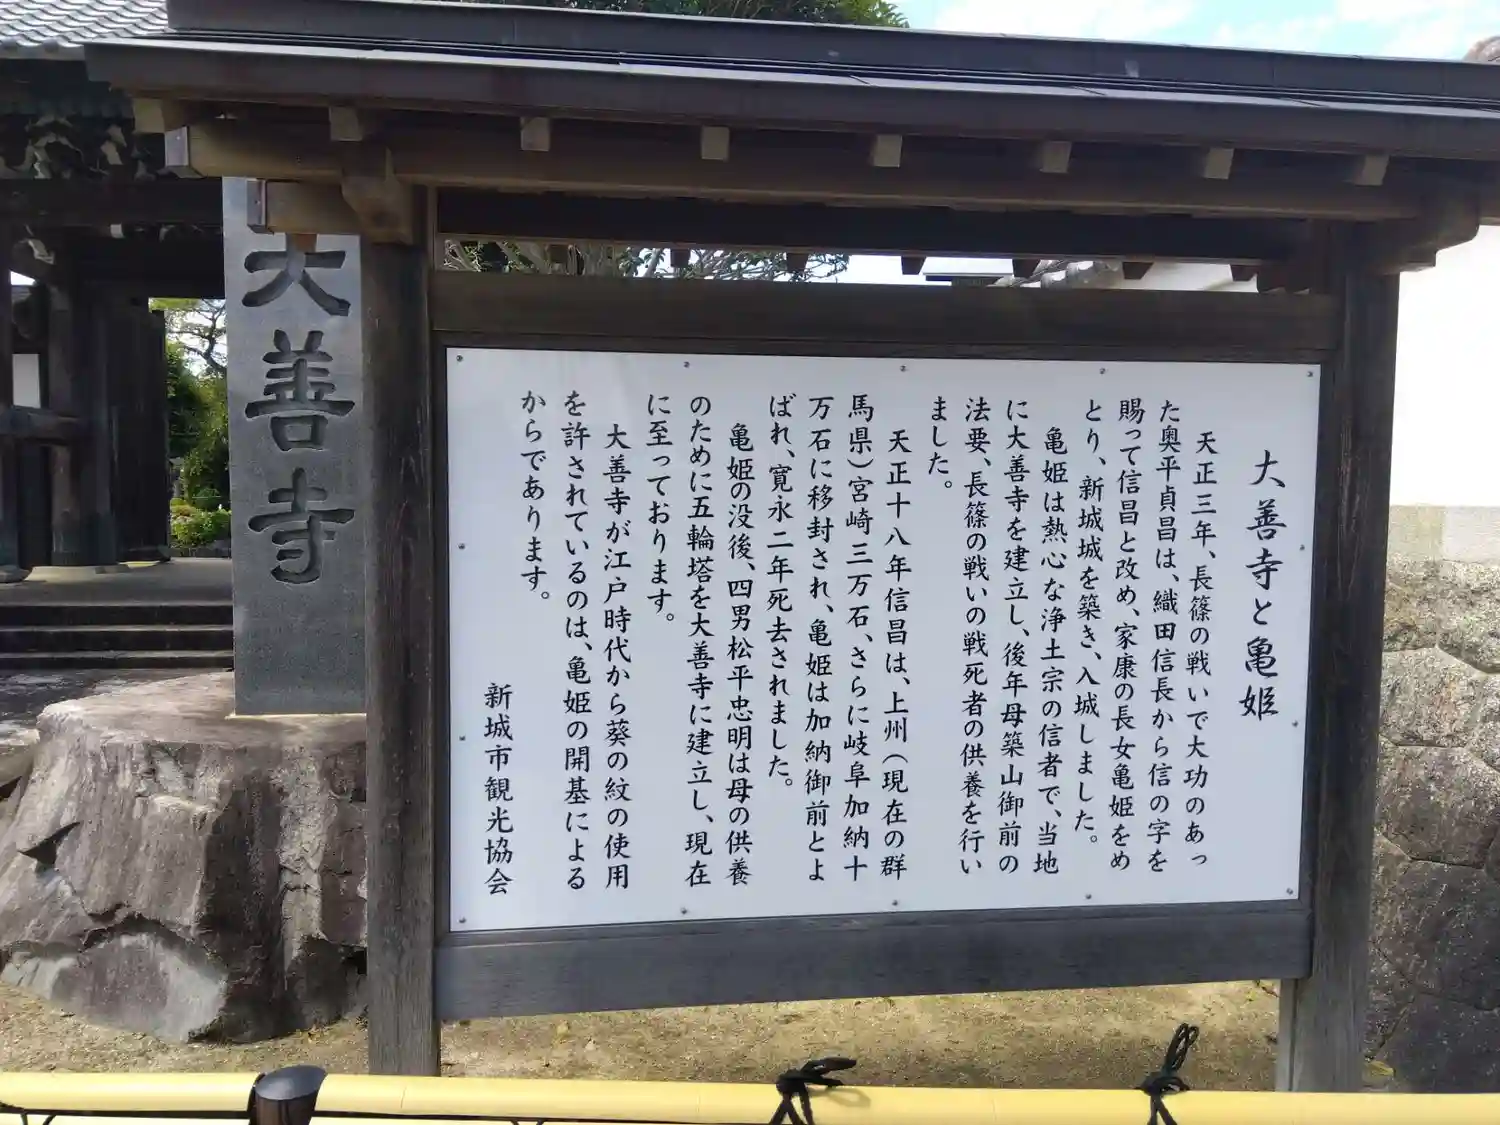 大善寺と亀姫
天正三年、長篠の戦いで大功のあっ
た奥平貞昌は、織田信長から信の字を
賜って信昌と改め、家康の長女亀姫をめ
とり、新城城を築き、入城しました。
亀姫は熱心な浄土宗の信者で、当地
に大善寺を建立し、後年母築山御前の
法要、長篠の戦いの戦死者の供養を行い
ました。
天正十八年信昌は、上州(現在の群
馬県)宮崎三万石、さらに岐阜加納十
万石に移封され、亀姫は加納御前とよ
ばれ、寛永二年死去されました。
亀姫の没後、四男松平忠明は母の供養
のために五輪塔を大善寺に建立し、現在
に至っております。
大善寺が江戸時代から葵の紋の使用
を許されているのは、亀姫の開基による
からであります。
新城市観光協会
大善寺